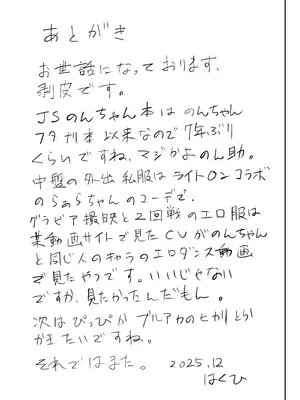 あとがき
お世話になっております、
剥皮です。
JSのんちゃん本は のんちゃん
フタナリ本以来なので7年ぶり
くらいですね、マジかよのん助。
中盤の外出 私服はライトオンコラボ
のらぁらちゃんのコーデで、
グラビア撮映と2回戦のエロ服は
某動画サイトで見たCVがのんちゃん
と同じ人のキャラのエロダンス動画
で見たやつです。いいじゃない
ですか、見たかったんだもん。
次はぴっぴか ブルアカのヒカリとか
かきたいですね。
それではまた。 2025.12
はくひ